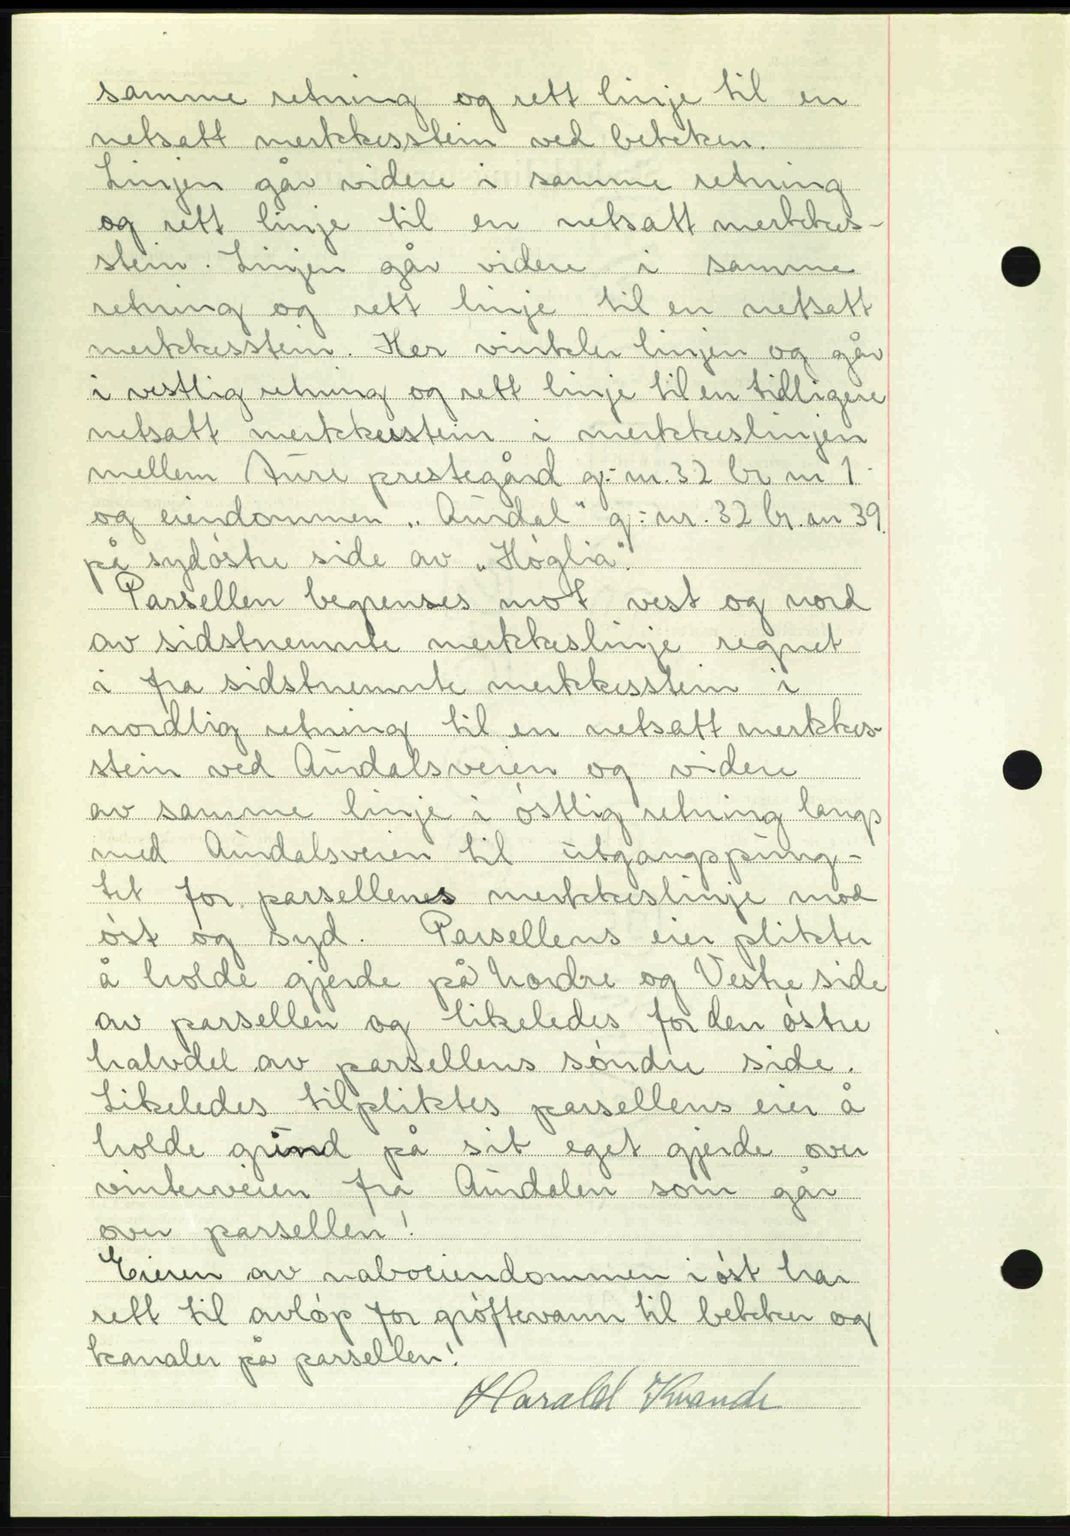 samme retning og rett linje til en
netsatt merkkesstein ved bekken.
Linjen går videre i samme retning
og rett linje til en netsatt merkkes-
stein. Linjen går videre i samme
retning og rett linje til en netsatt
merkkesstein. Her vinkler linjen og går
i vestlig retning og rett linje til en tidligere
netsatt merkkesstein i merkkeslinjen
mellem Aure prestegård g.-nr. 32 br nr 1
og eiendommen „Aurdal" g:-nr. 32 br. nr 39.
på sydóstre side av „Hóglia".
Parsellen begrenses mot vest og nord
av sidstnemnte merkkeslinje regnet
i fra sidstnemnte merkkesstein i
nordlig retning til en netsatt merkkes-
stein ved Aurdalsveien og videre
av samme linje i óstlig retning langs
med Aurdalsveien til utgangspung-
tet for parsellenes merkkeslinje mod
óst og syd. Parsellens eier plikter
å holde gjerde på Nordre og Vestre side
av parsellen og likeledes for den óstre
halvdel av parsellens sóndre side.
Likeledes tilpliktes parsellens eier å
holde grind på sit eget gjerde over
vinterveien fra Aurdalen som går
over parsellen!
Eieren av naboeiendommen i óst har
rett til avlóp for gróftevann til bekker og
kanaler på parsellen!
Harald Kvande